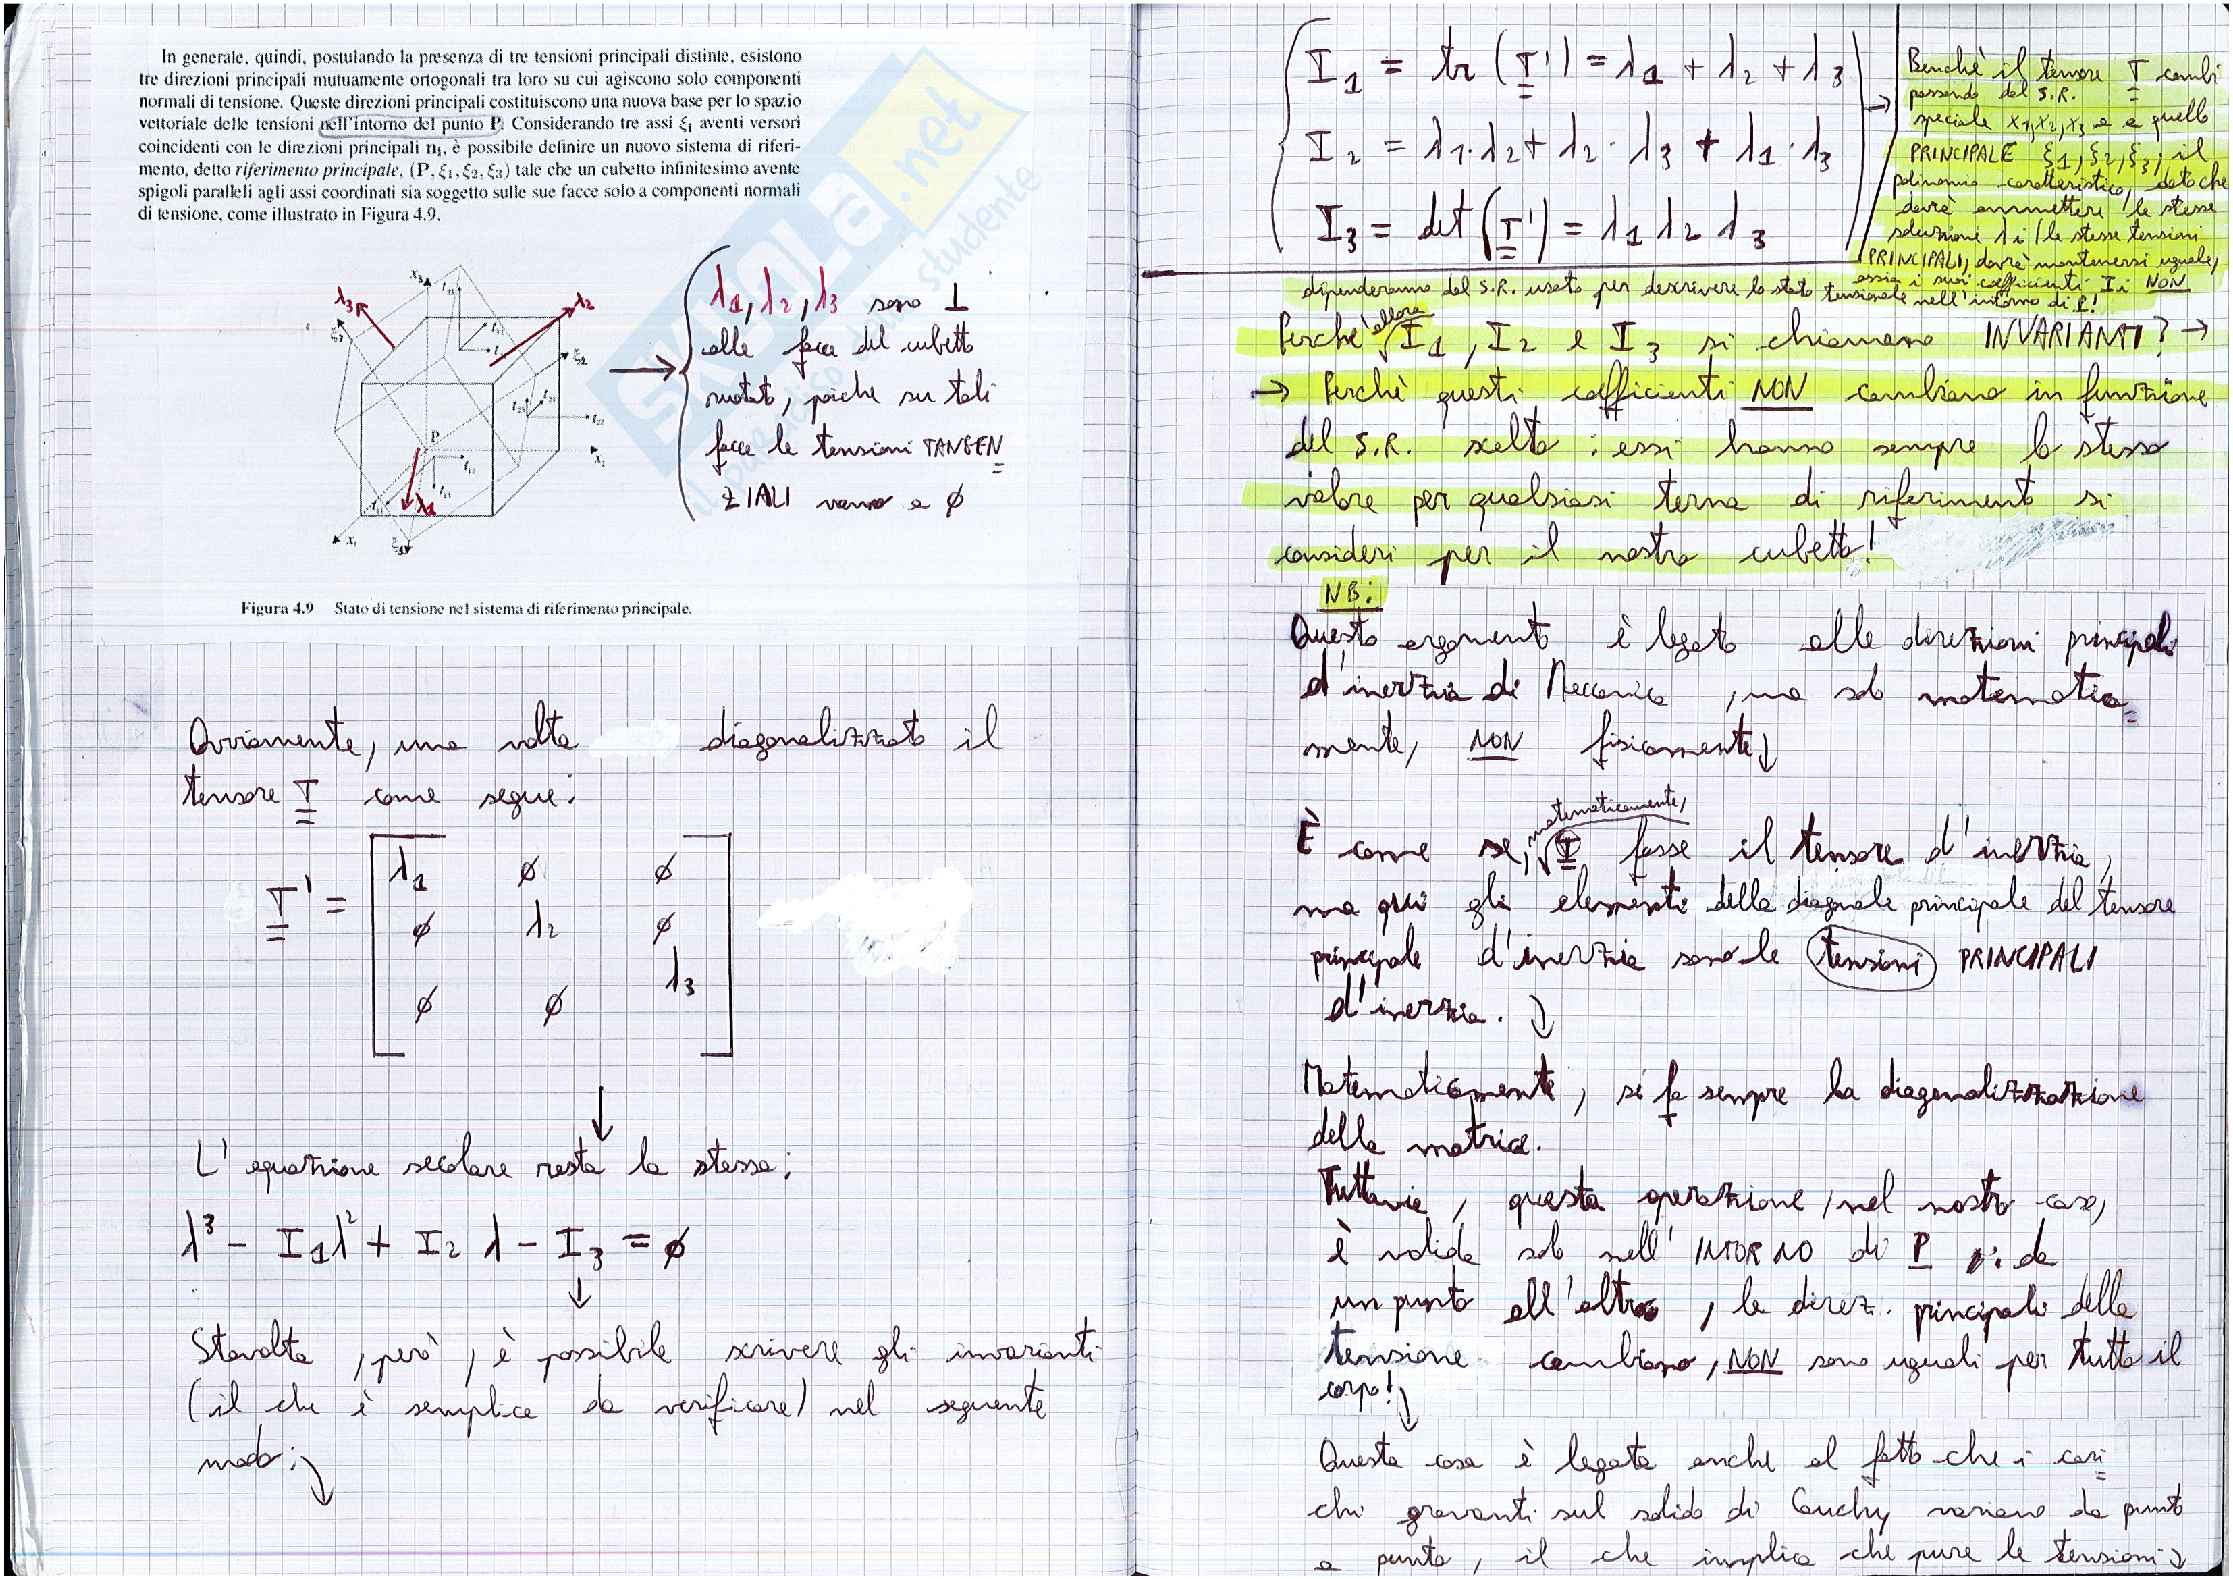 In generale, quindi, postulando la presenza di tre tensioni principali distinte, esistono
tre direzioni principali mutuamente ortogonali tra loro su cui agiscono solo componenti
normali di tensione. Queste direzioni principali costituiscono una nuova base per lo spazio
vettoriale delle tensioni nell'intorno del punto P. Considerando tre assi ξi aventi versori
coincidenti con le direzioni principali ni, è possibile definire un nuovo sistema di riferi-
mento, detto riferimento principale, (P, ξ1, ξ2, ξ3) tale che un cubetto infinitesimo avente
spigoli paralleli agli assi coordinati sia soggetto sulle sue facce solo a componenti normali
di tensione, come illustrato in Figura 4.9.
SKUOLA.net
il paradiso dello studente
λ3
x3
λ2
ξ3
ξ2
P
λ1
x1
ξ1
λ1, λ2, λ3 sono ⊥
alle facce del cubetto
ruotato, poiché su tali
facce le tensioni TANGEN=
ZIALI vanno a ø
Figura 4.9 Stato di tensione nel sistema di riferimento principale.
Ovviamente, una volta diagonalizzato il
tensore T come segue:
T' =
λ1 ø ø
ø λ2 ø
ø ø λ3
L'equazione secolare resta la stessa:
λ³ - I1λ² + I2 λ - I3 = ø
Stavolta, però, è possibile scrivere gli invarianti
(il che è semplice da verificare) nel seguente
modo:
I1 = tr (T') = λ1 + λ2 + λ3
I2 = λ1·λ2 + λ2·λ3 + λ1·λ3
I3 = det (T') = λ1 λ2 λ3
Benché il tensore T cambi
passando dal S.R.
speciale x1,x2,x3 e a quello
PRINCIPALE ξ1, ξ2, ξ3, il
polinomio caratteristico, dato che
dovrà ammettere le stesse
soluzioni λi (le stesse tensioni
PRINCIPALI), dovrà mantenersi uguale,
ossia i suoi coefficienti Ii NON
dipenderanno dal S.R. usato per descrivere lo stato tensionale nell'intorno di P!
Perché allora I1, I2 e I3 si chiamano INVARIANTI? →
→ Perché questi coefficienti NON cambiano in funzione
del S.R. scelto: essi hanno sempre lo stesso
valore per qualsiasi terna di riferimento si
consideri per il nostro cubetto!
NB:
Questo argomento è legato alle direzioni principali
d'inerzia di Meccanica, ma solo matematica=
mente, NON fisicamente
È come se, matematicamente, T fosse il tensore d'inerzia,
ma qui gli elementi della diagonale principale del tensore
principale d'inerzia sono le tensioni PRINCIPALI
d'inerzia.
Matematicamente, si fa sempre la diagonalizzazione
della matrice.
Tuttavia, questa operazione, nel nostro caso,
è valida solo nell'INTORNO di P: da
un punto all'altro, le direz. principali della
tensione cambiano, NON sono uguali per tutto il
corpo!
Questa cosa è legata anche al fatto che i cari=
chi gravanti sul solido di Cauchy variano da punto
a punto, il che implica che pure le tensioni